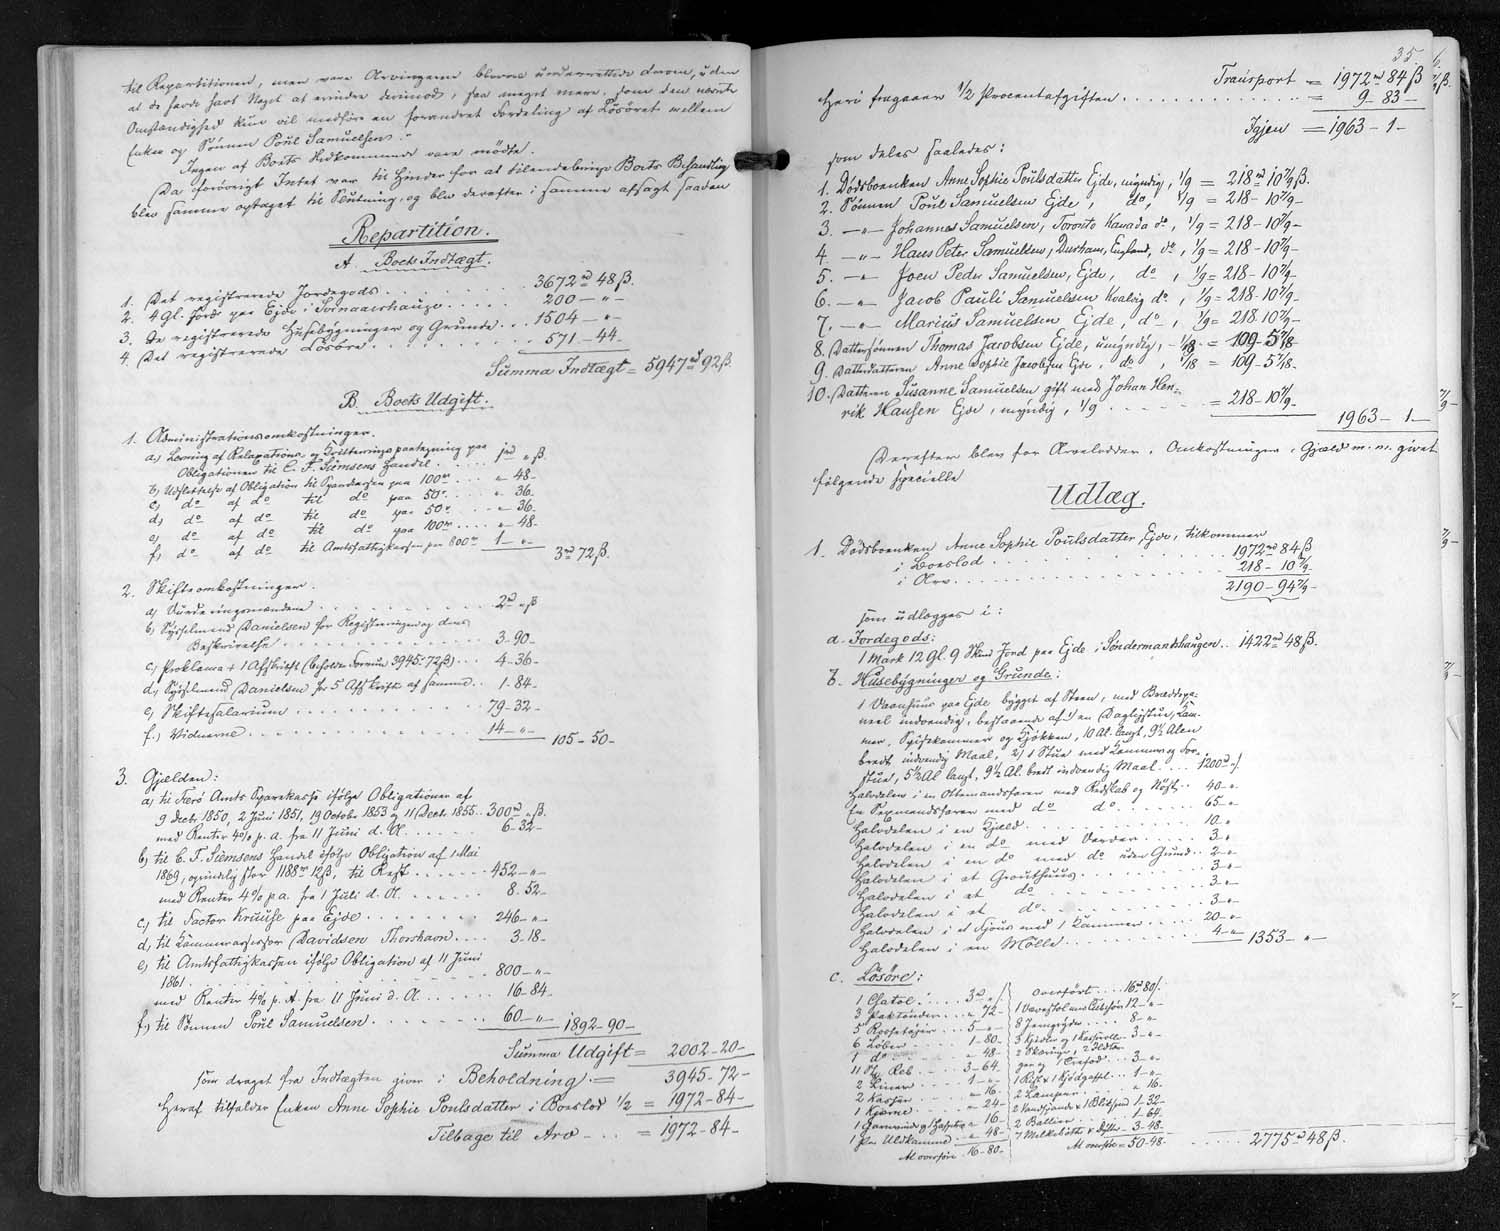 til Repartitionen, men vare Arvingerne blevne underrettede derom, uden
at de havde havt Noget at erindre derimod, saa meget mere, som den nævnte
Omstændighed kun vil medføre en forandret Fordeling af Løsøret mellem
Enken og Sønnen Poul Samuelsen."
Ingen af Boets Vedkommende vare mødte.
Da forøvrigt Intet var til Hinder for at tilendebringe Boets Behandling
blev samme optaget til Slutning, og blev derefter i samme afsagt saadan
Repartition.
A. Boets Indtægt.
1. Det registrerede Jordegods . . . 3672 rd 48 ß.
2. 4 Gl. Jord paa Ejde i . . . 200 - " -
3. De registrerede Husebygninger og Grunde . . . 1504 - " -
4. Det registrerede Løsøre . . . 571 - 44 -
Summa Indtægt = 5947 rd 92 ß.
B. Boets Udgift.
1. Administrationsomkostninger.
a) Læsning af Relaxations og Kvitteringspaategning paa
Obligationen til C. F. Siemsens Handel . . . 1 rd " ß
b) Udslettelse af Obligation til Sparekassen paa 100 rd . . . " 48 -
c) do af do til do paa 50 rd . . . " 36 -
d) do af do til do paa 50 rd . . . " 36 -
e) do af do til do paa 100 rd . . . " 48 -
f) do af do til Amtsfattigkassen paa 800 rd 1 - " -
3 rd 72 ß.
2. Skifteomkostninger.
a) Vurderingsmændene . . . 2 rd " ß
b) Sysselmand Danielsen for Registreringen og dens
Beskrivelse . . . 3 - 90 -
c) Proklama + 1 Afskrift (beholden Formue 3945 - 72 ß) . . . 4 - 36 -
d) Sysselmand Danielsen for 5 Afskrift af samme . . . 1 - 84 -
e) Skiftesalarium . . . 79 - 32 -
f) Vidnerne . . . 14 - " -
105 - 50 -
3. Gjælden:
a) til Færø Amts Sparekasse ifølge Obligationer af
9 Decbr. 1850, 2 Juni 1851, 19 Octobr 1853 og 11 Decbr 1855 . . 300 rd " ß.
med Renter 4% p. a. fra 11 Juni d. A. . . . 6 - 32 -
b) til C. F. Siemsens Handel ifølge Obligation af 1 Mai
1869, oprindelig stor 1188 rd 12 ß, til Rest . . . 452 - " -
med Renter 4% p. a. fra 1 Juli d. A. . . . 8 . 52 -
c) til Factor Krause paa Ejde . . . 246 - " -
d) til Kammerassessor Davidsen Thorshavn . . . 3 - 18 -
e) til Amtsfattigkassen ifølge Obligation af 11 Juni
1861 . . . 800 - " -
med Renter 4% p. A. fra 11 Juni d. A. . . . 16 - 84 -
f) til Sønnen Poul Samuelsen . . . 60 - " -
1892 - 90 -
Summa Udgift = 2002 - 20 -
som draget fra Indtægten giver i Beholdning = 3945 - 72 -
Heraf tilfalder Enken Anne Sophie Poulsdatter i Boeslod 1/2 = 1972 - 84 -
Tilbage til Arv . . . = 1972 - 84 -
35
Transport = 1972 rd 84 ß
Heri fragaaer 1/2 Procentafgiften . . . = 9 - 83 -
Igjen = 1963 - 1 -
som deles saaledes:
1. Dødsboenken Anne Sophie Poulsdatter Ejde, myndig, 1/9 = 218 rd 10 7/9 ß.
2. Sønnen Poul Samuelsen Ejde, do, 1/9 = 218 - 10 7/9 -
3. - " - Johannes Samuelsen, Toronto Kanada do, 1/9 = 218 - 10 7/9 -
4. - " - Hans Peter Samuelsen, Durham, England, do, 1/9 = 218 - 10 7/9 -
5. - " - Joen Peder Samuelsen, Ejde, do, 1/9 = 218 - 10 7/9 -
6. - " - Jacob Pauli Samuelsen Kvalvig do, 1/9 = 218 - 10 7/9 -
7. - " - Marius Samuelsen Ejde, do, 1/9 = 218 - 10 7/9 -
8. Dattersønnen Thomas Jacobsen Ejde, umyndig, 1/18 = 109 - 5 7/18 -
9. Datterdatteren Anne Sophie Jacobsen Ejde, do, 1/18 = 109 - 5 7/18 -
10. Datteren Susanne Samuelsen gift med Johan Hen=
rik Hansen Ejde, myndig, 1/9 . . . = 218 - 10 7/9 -
1963 - 1 -
Derefter blev for Arvelodder, Omkostninger, Gjæld m. m. givet
følgende specielle
Udlæg.
1. Dødsboenken Anne Sophie Poulsdatter Ejde, tilkommer
i Boeslod . . . 1972 rd 84 ß
i Arv . . . 218 - 10 7/9 -
2190 - 94 7/9 -
som udlægges i:
a. Jordegods:
1 Mark 12 Gl. 9 Skind Jord paa Ejde i Søndermandshaugen . . 1422 rd 48 ß.
b. Husebygninger og Grunde:
1 Vaanhuus paa Ejde bygget af Steen, med Bræddepa-
neel indvendig, bestaaende af 1) en Dagligstue, Kam-
mer, Spisekammer og Kjøkken, 10 Al. langt, 9 1/2 Alen
bredt indvendig Maal, 2) 1 Stue med Kammer og For-
stue, 5 1/2 Al langt, 9 1/2 Al. bredt indvendig Maal . . . 1200 rd " ß.
Halvdelen i en Ottemandsfarer med Redskab og Nøst . . 40 - "
En Sexmandsfarer med do do . . . 65 - "
Halvdelen i en Hjeld . . . 10 "
Halvdelen i en do med . . . 3 - "
Halvdelen i en do med do uden Grund . . 2 - "
Halvdelen i et Grouthuus . . . 3 - "
Halvdelen i et do . . . 3 - "
Halvdelen i et do . . . 3 - "
Halvdelen i et Fjøus med 1 Kammer . . . 20 - "
Halvdelen i en Mølle . . . 4 - "
1353 - " -
c. Løsøre:
1 Chatol . . . 3 rd " ß
3 Paktønder . . . " 72 -
5 Roessetøjer . . 5 - " -
6 Løber . . . 1 - 80 -
1 do . . . " 48 -
11 Reb . . . 3 - 64 -
2 Liner . . . 1 - " -
2 Kasser . . . " 16 -
1 Kjerne . . . " 24 -
1 Garnvind og . . . " 16 -
1 Uldkamme . . " 48 -
At overføre 16 - 80 -
Overført . . . 16 rd 80 ß.
1 Vævestol med . . . 12 - "
8 Jerngryder . . . 8 - "
3 Kjedler og 1 Kasserolle . . 3 - "
. . . 3 - "
1 Rist & 1 Kjødgaffel . . 1 - "
2 Lamper . . . " 16 -
2 & 1 . . . 1 - 32 -
2 Ballier . . . 1 - 64 -
7 Melkebøtter & . . . 3 - 48 -
At overføre = 50 - 48 -
2775 rd 48 ß.